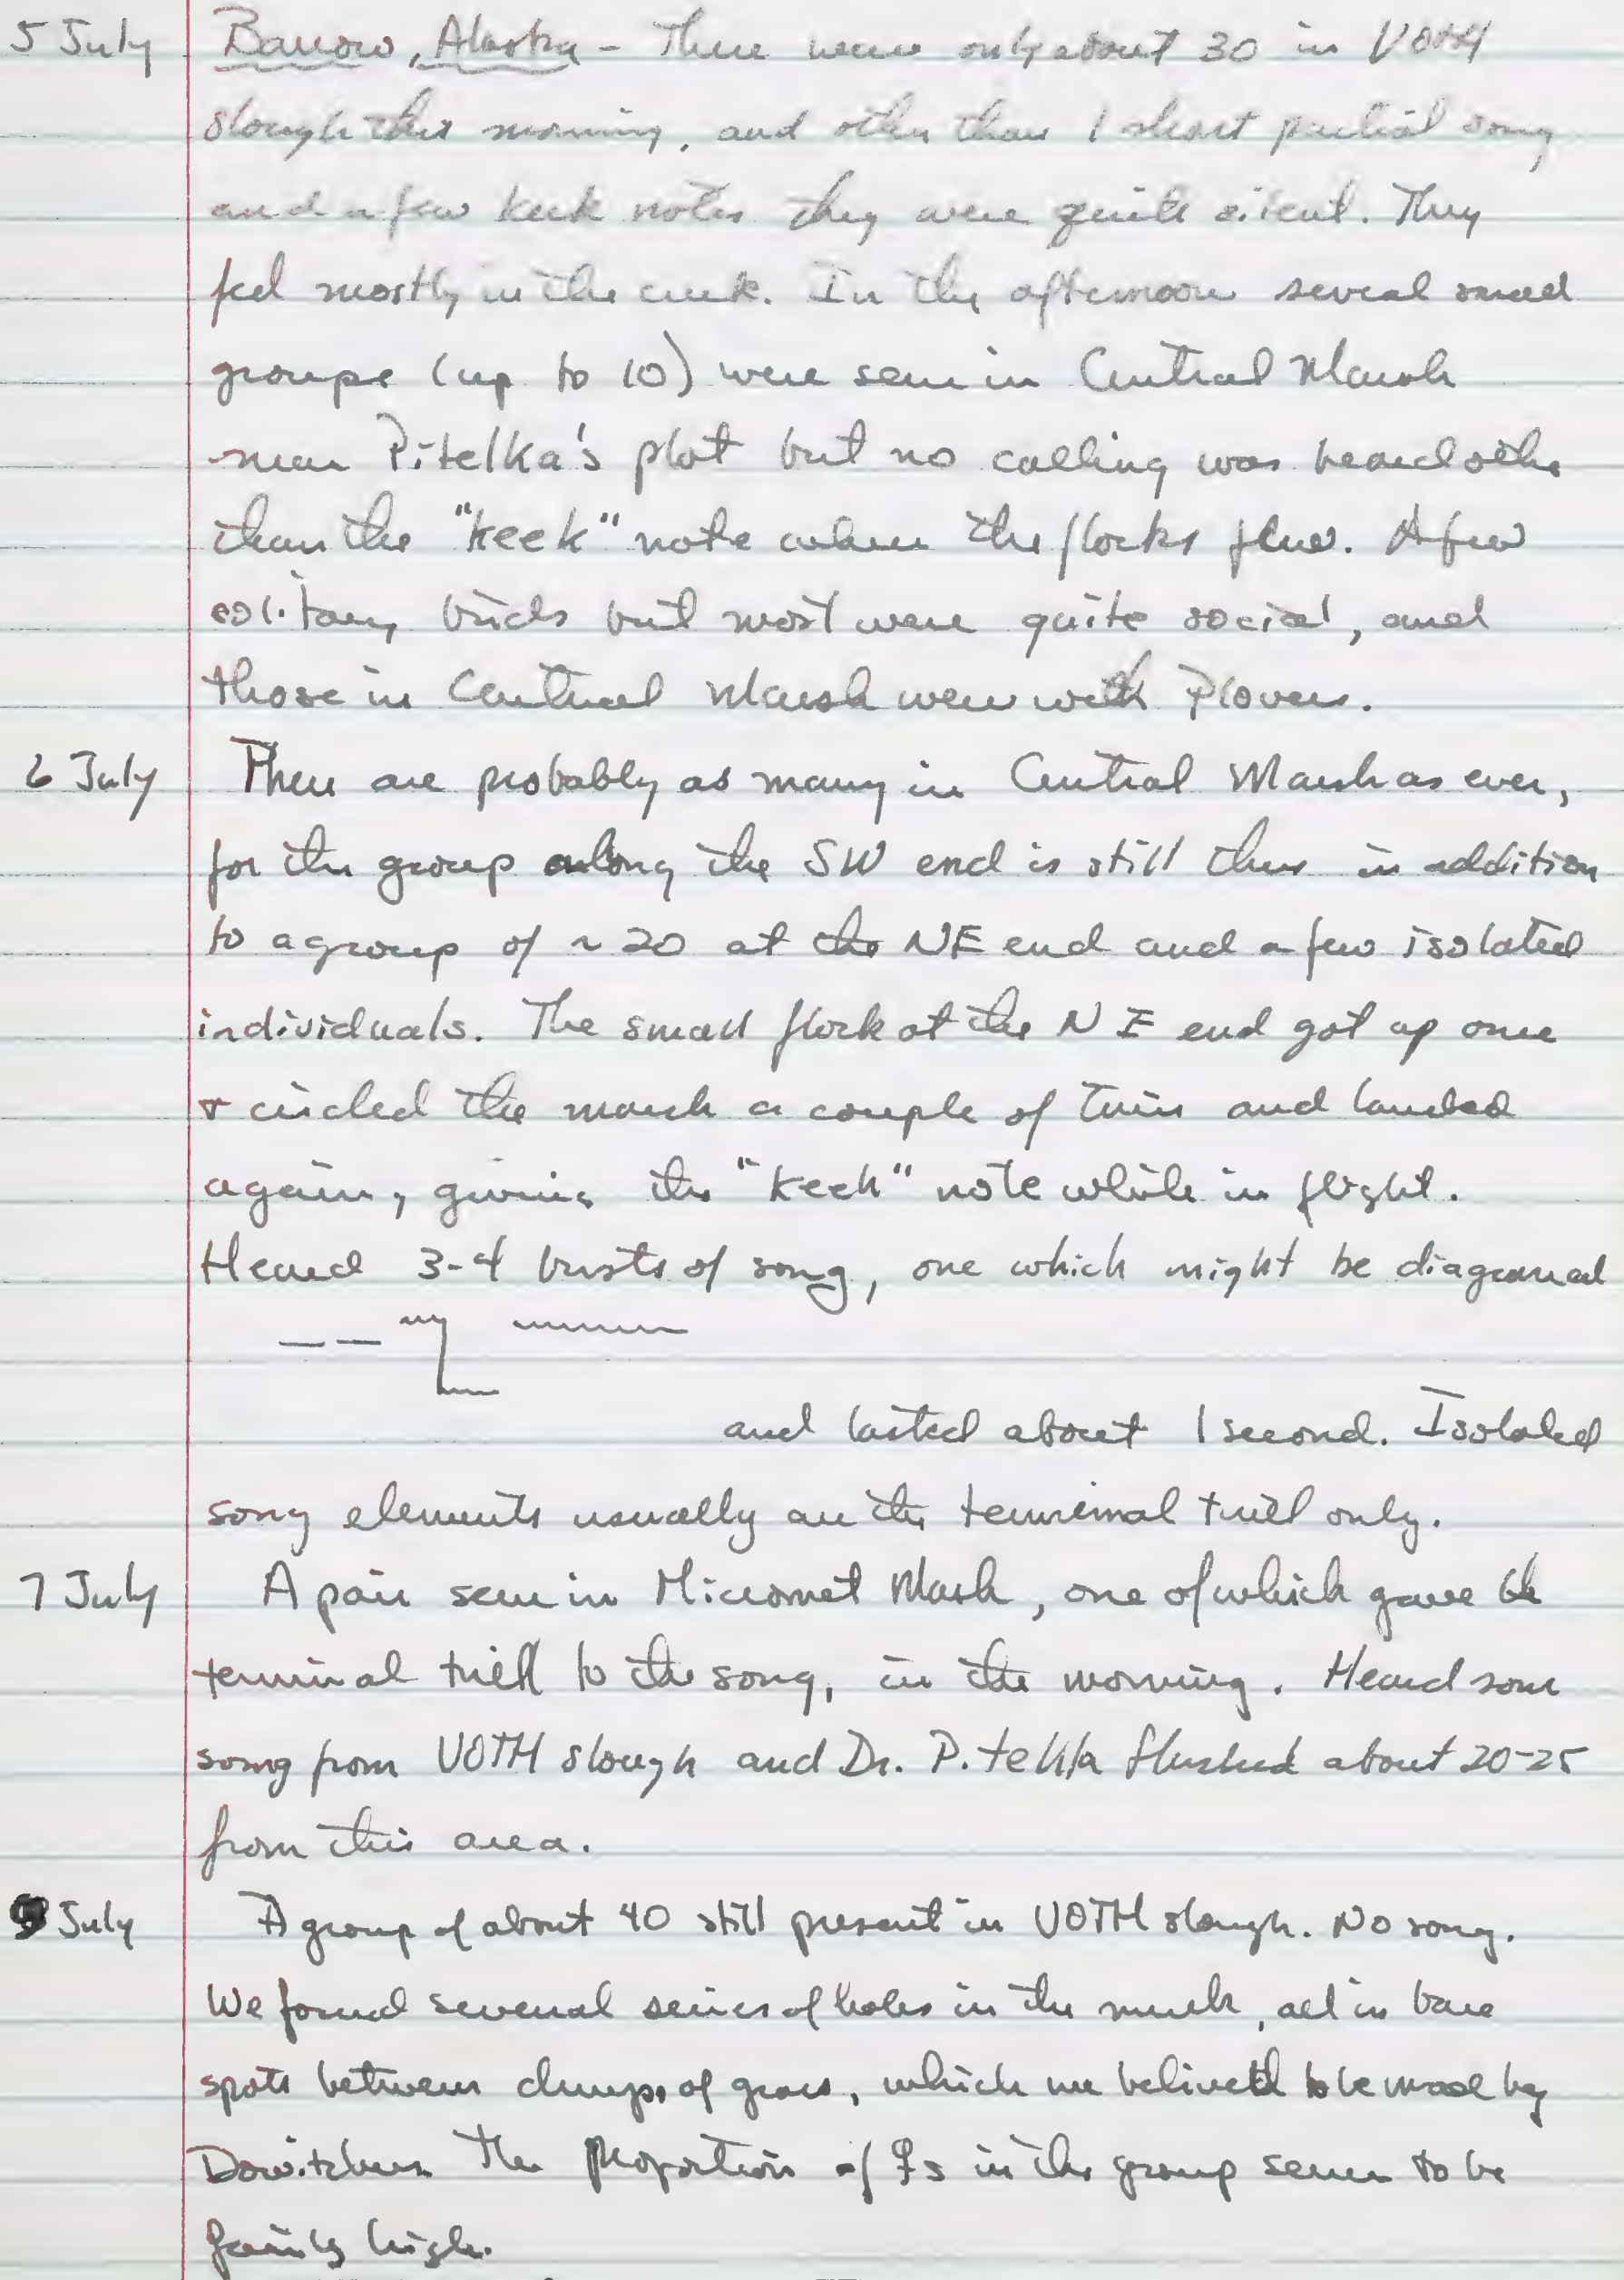 5 July Barrow, Alaska - There were only about 30 in VOTH
slough this morning, and other than 1 short partial song
and a few keek notes they were quite silent. They
feed mostly in the creek. In the afternoon several small
groups (up to 10) were seen in Central Marsh
near Pitelka's plot but no calling was heard other
than the "keek" note when the flocks flew. A few
solitary birds but most were quite social, and
those in Central Marsh were with Plovers.
6 July There are probably as many in Central Marsh as ever,
for the group along the SW end is still there in addition
to a group of ~ 20 at the NE end and a few isolated
individuals. The small flock at the NE end got up once
+ circled the marsh a couple of times and landed
again, giving the "keek" note while in flight.
Heard 3-4 bursts of song, one which might be diagramed
and lasted about 1 second. Isolated
song elements usually are the terminal trill only.
7 July A pair seen in Micromet Marsh, one of which gave the
terminal trill to the song, in the morning. Heard some
song from VOTH slough and Dr. Pitelka flushed about 20-25
from this area.
July A group of about 40 still present in VOTH slough. No song.
We found several series of holes in the muck, all in bare
spots between clumps of grass, which we believed to be made by
Dowitchers. The proportion of ♀s in the group seems to be
fairly high.